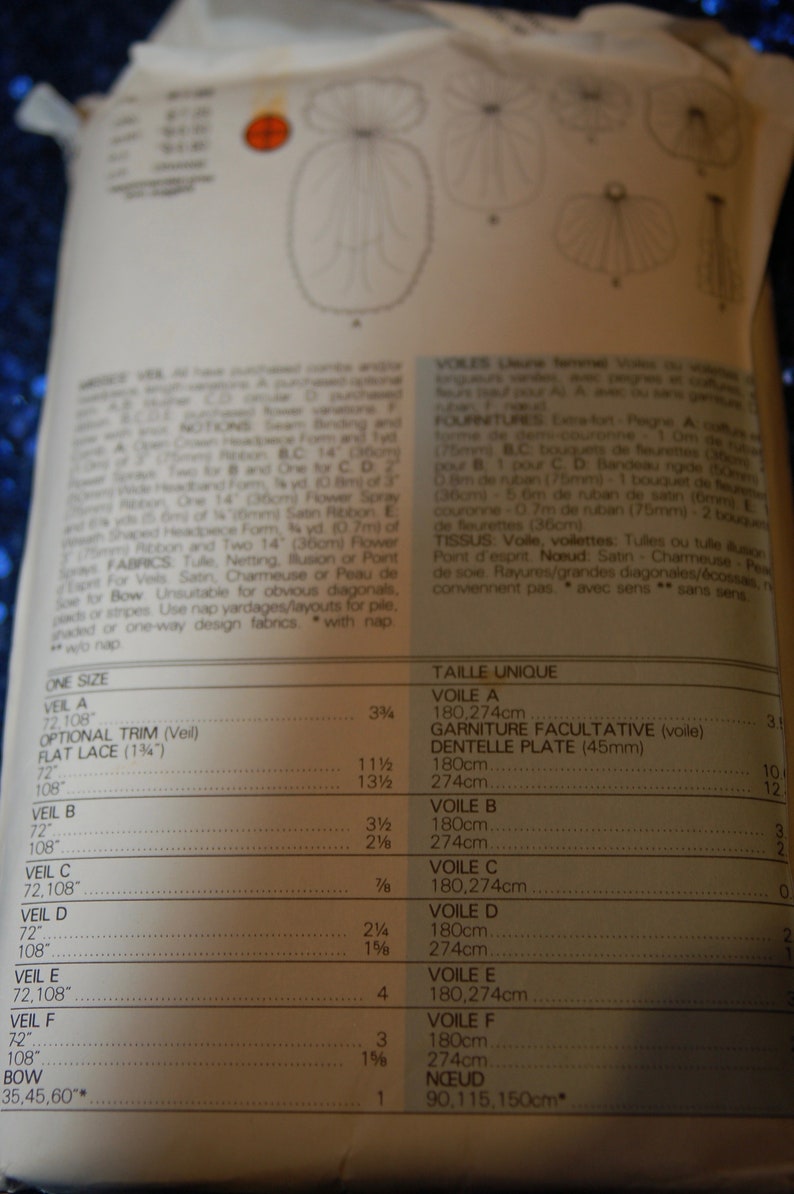 MISSES' VEIL All have purchased combs and/or
headpiece, length variations. A: purchased optional
C,D: circular. D: purchased
B,C,D,E: purchased flower variations. F:
bow with knot. NOTIONS: Seam Binding and
Comb. A: Open Crown Headpiece Form and 1 yd.
(1.0m) of 3" (75mm) Ribbon. B,C: 14" (36cm)
Flower Sprays. Two for B and One for C. D: 2"
(50mm) Wide Headband Form, ⅞ yd. (0.8m) of 3"
(75mm) Ribbon, One 14" (36cm) Flower Spray
and 6⅛ yds (5.6m) of ¼"(6mm) Satin Ribbon. E:
Wreath Shaped Headpiece Form, ¾ yd. (0.7m) of
3" (75mm) Ribbon and Two 14" (36cm) Flower
Sprays. FABRICS: Tulle, Netting, Illusion or Point
d'Esprit For Veils. Satin, Charmeuse or Peau de
Soie for Bow. Unsuitable for obvious diagonals,
plaids or stripes. Use nap yardages/layouts for pile,
shaded or one-way design fabrics. *with nap.
**w/o nap.
VOILES (Jeune femme) Voiles ou voilettes
longueurs variées, avec peignes et coiffures
fleurs (sauf pour A). A: avec ou sans garniture. D:
ruban. F: nœud.
FOURNITURES: Extra-fort - Peigne. A: coiffure
forme de demi-couronne - 1.0m de ruban
(75mm). B,C: bouquets de fleurettes (36cm), 2
pour B, 1 pour C. D: Bandeau rigide (50mm)
0.8m de ruban (75mm) - 1 bouquet de fleurettes
(36cm) - 5.6m de ruban de satin (6mm). E:
couronne - 0.7m de ruban (75mm) - 2 bouquets
de fleurettes (36cm).
TISSUS: Voile, voilettes: Tulles ou tulle illusion
Point d'esprit. Nœud: Satin - Charmeuse - Peau
de soie. Rayures/grandes diagonales/écossais, n
conviennent pas. * avec sens ** sans sens.
ONE SIZE
VEIL A
72,108" 3¾
OPTIONAL TRIM (Veil)
FLAT LACE (1¾")
72" 11½
108" 13½
VEIL B
72" 3½
108" 2⅛
VEIL C
72,108" ⅞
VEIL D
72" 2¼
108" 1⅝
VEIL E
72,108" 4
VEIL F
72" 3
108" 1⅝
BOW
35,45,60"* 1
TAILLE UNIQUE
VOILE A
180,274cm 3.
GARNITURE FACULTATIVE (voile)
DENTELLE PLATE (45mm)
180cm 10
274cm 12
VOILE B
180cm 3
274cm 2
VOILE C
180,274cm 0
VOILE D
180cm 2
274cm 1
VOILE E
180,274cm 3
VOILE F
180cm
274cm
NŒUD
90,115,150cm*